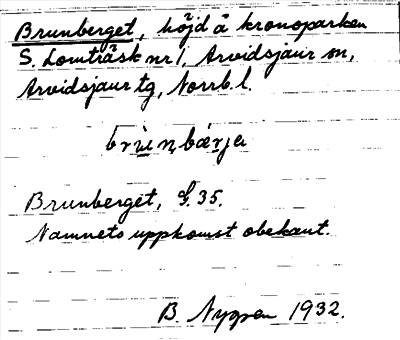 Brunberget, höjd å kronoparken
S. Lomträsk nr 1, Arvidsjaur sn,
Arvidsjaur tg, Norrb. l.
brùnbärja
Brunberget, G. 35.
Namnets uppkomst obekant.
B. Nygren 1932.